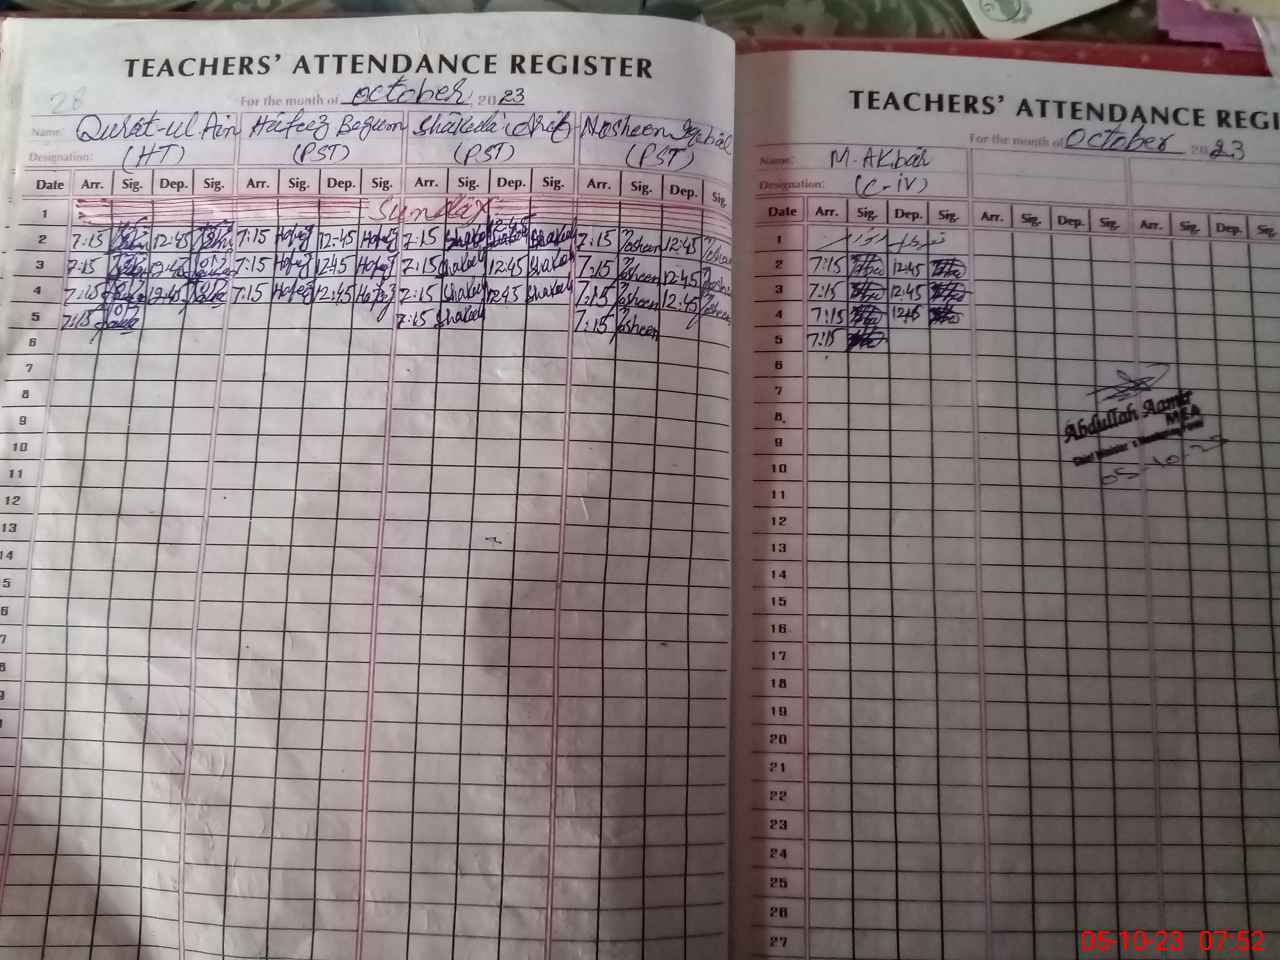 TEACHERS' ATTENDANCE REGISTER
28 For the month of October 2023
Name: Qurat-ul Ain Hafeez Begum Shakeela Nosheen Iqbal
Designation: (HT) (PST) (PST) (PST)
Date Arr. Sig. Dep. Sig. Arr. Sig. Dep. Sig. Arr. Sig. Dep. Sig. Arr. Sig. Dep. Sig.
1 Sunday
2 7:15 12:45 7:15 Hafeez 12:45 Hafeez 7:15 Shakeela 12:45 Shakeela 7:15 Nosheen 12:45
3 7:15 12:45 7:15 Hafeez 12:45 Hafeez 7:15 Shakeela 12:45 Shakeela 7:15 Nosheen 12:45
4 7:15 12:45 7:15 Hafeez 12:45 Hafeez 7:15 Shakeela 12:45 Shakeela 7:15 Nosheen 12:45
5 7:15 7:15 Shakeela 7:15 Nosheen
6
7
8
9
10
11
12
13
14
5
6
7
8
9
TEACHERS' ATTENDANCE REGI
For the month of October 2023
Name: M. Akbar
Designation: (C-iv)
Date Arr. Sig. Dep. Sig. Arr. Sig. Dep. Sig. Arr. Sig. Dep.
1
2 7:15 12:45
3 7:15 12:45
4 7:15 12:45
5 7:15
6
7
8
9
10
11
12
13
14
15
16
17
18
19
20
21
22
23
24
25
26
27
Abdullah Aamir
MEA
Chief Minister's Monitoring Force
05-10-23
05-10-23 07:52